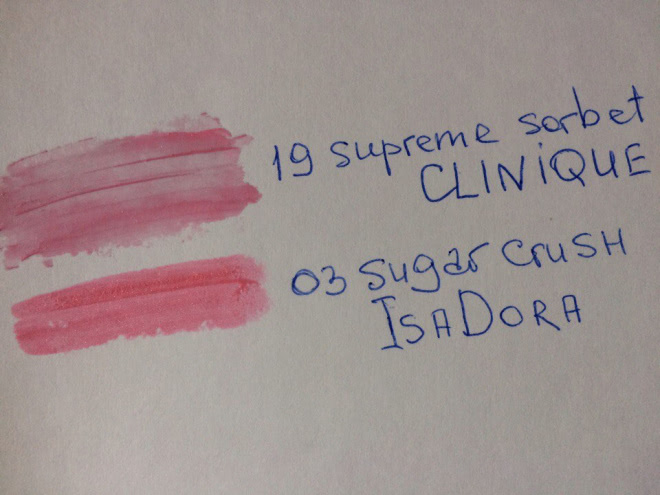 19 supreme sorbet
CLINiQUE
03 sugar crush
IsaDora